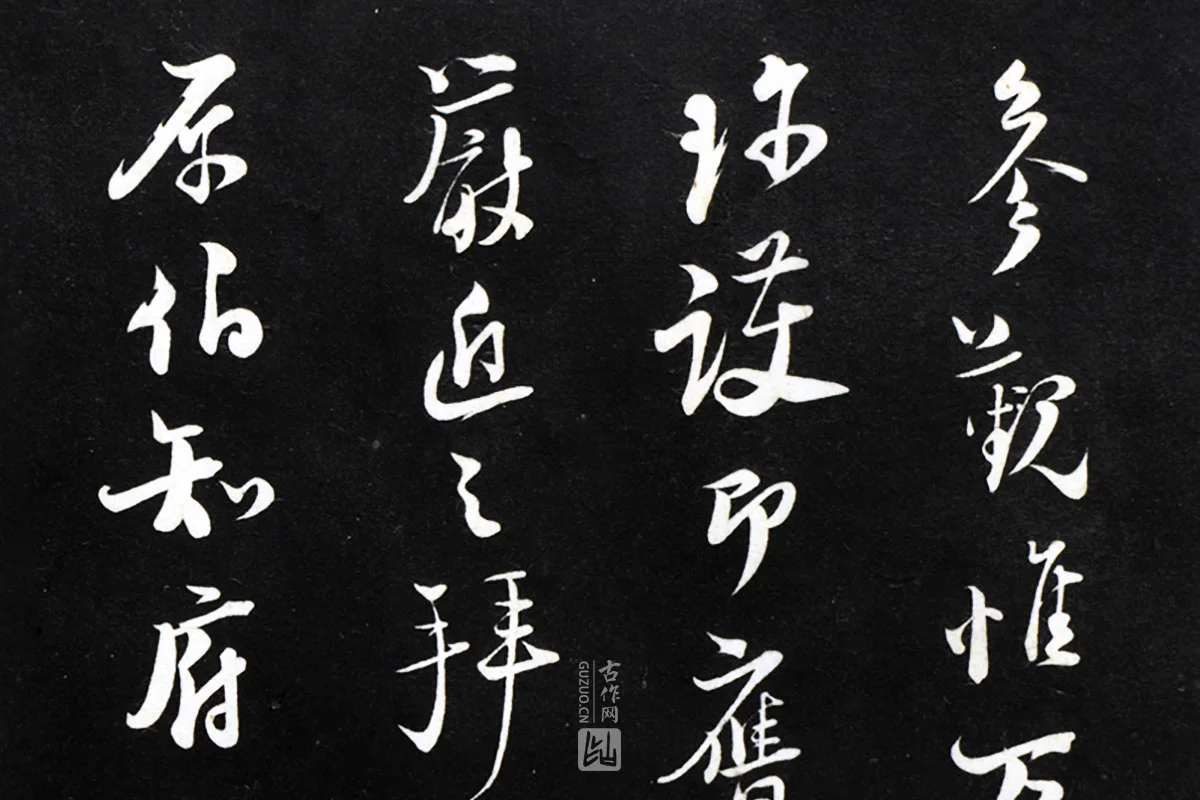 参觐惟万
珎護即膺
嚴近之拜
原伯知府
古作网
GUZUO.CN